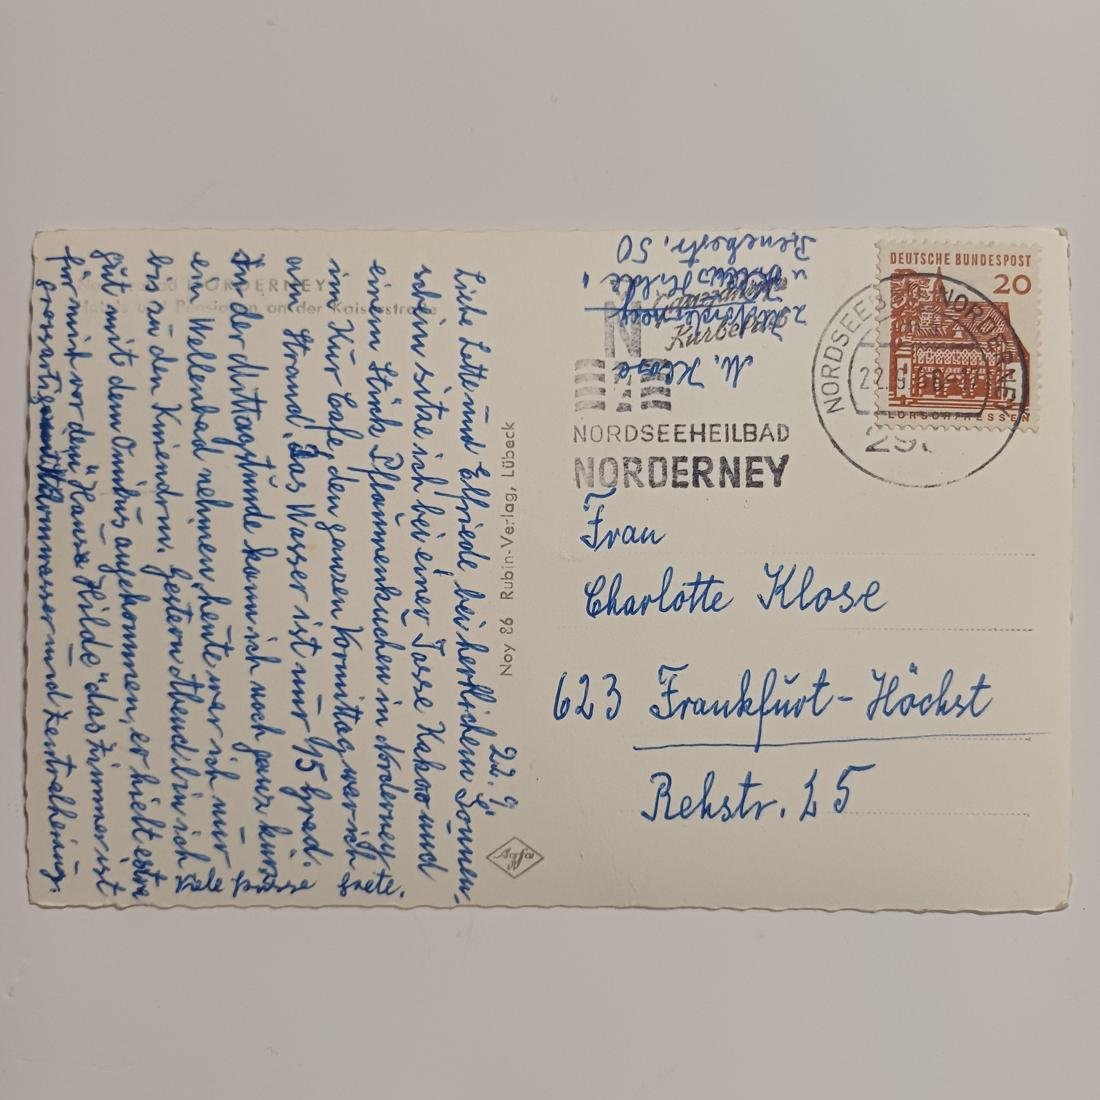 Nordseebad NORDERNEY
Hotels und Pensionen an der Kaiserstraße
22. 9.
Liebe Lotte und Elfriede, bei herrlichem Sonnen-
schein sitze ich bei einer Tasse Kakao und
einem Stück Pflaumenkuchen in Norderney
im Kur Cafe, den ganzen Vormittag war ich
am Strand, Das Wasser ist nur 15 Grad.
In der Mittagstunde kann ich noch ganz kurz
ein Wellenbad nehmen, heute war ich nur
bis zu den Knien drin. Gestern Abend bin ich
gut mit dem Omnibus angekommen, er hielt extra
für mich vor dem "Haus Hilde" das Zimmer ist
grossartig und Zentralheizung.
Viele Grüsse Grete.
Noy 86 Rubin-Verlag, Lübeck
Agfa
M. Klose
Norderney
Haus Hilde
Benekestr. 50
Ganzjährige
Kurbetrieb
N
NORDSEEHEILBAD
NORDERNEY
DEUTSCHE BUNDESPOST
20
LORSCH/HESSEN
NORDSEEBAD NORDERNEY
22.9.
Frau
Charlotte Klose
623 Frankfurt-Höchst
Rehstr. 25